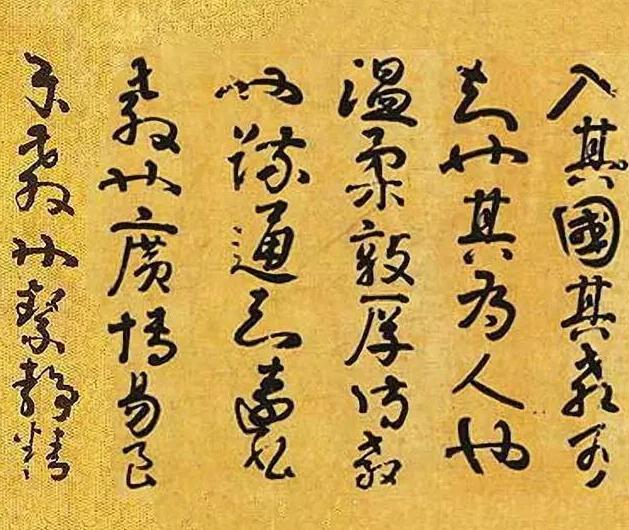 入其國其教可
知也其為人也
温柔敦厚詩教
也疏通知遠書
教也廣博易良
樂教也絜靜精